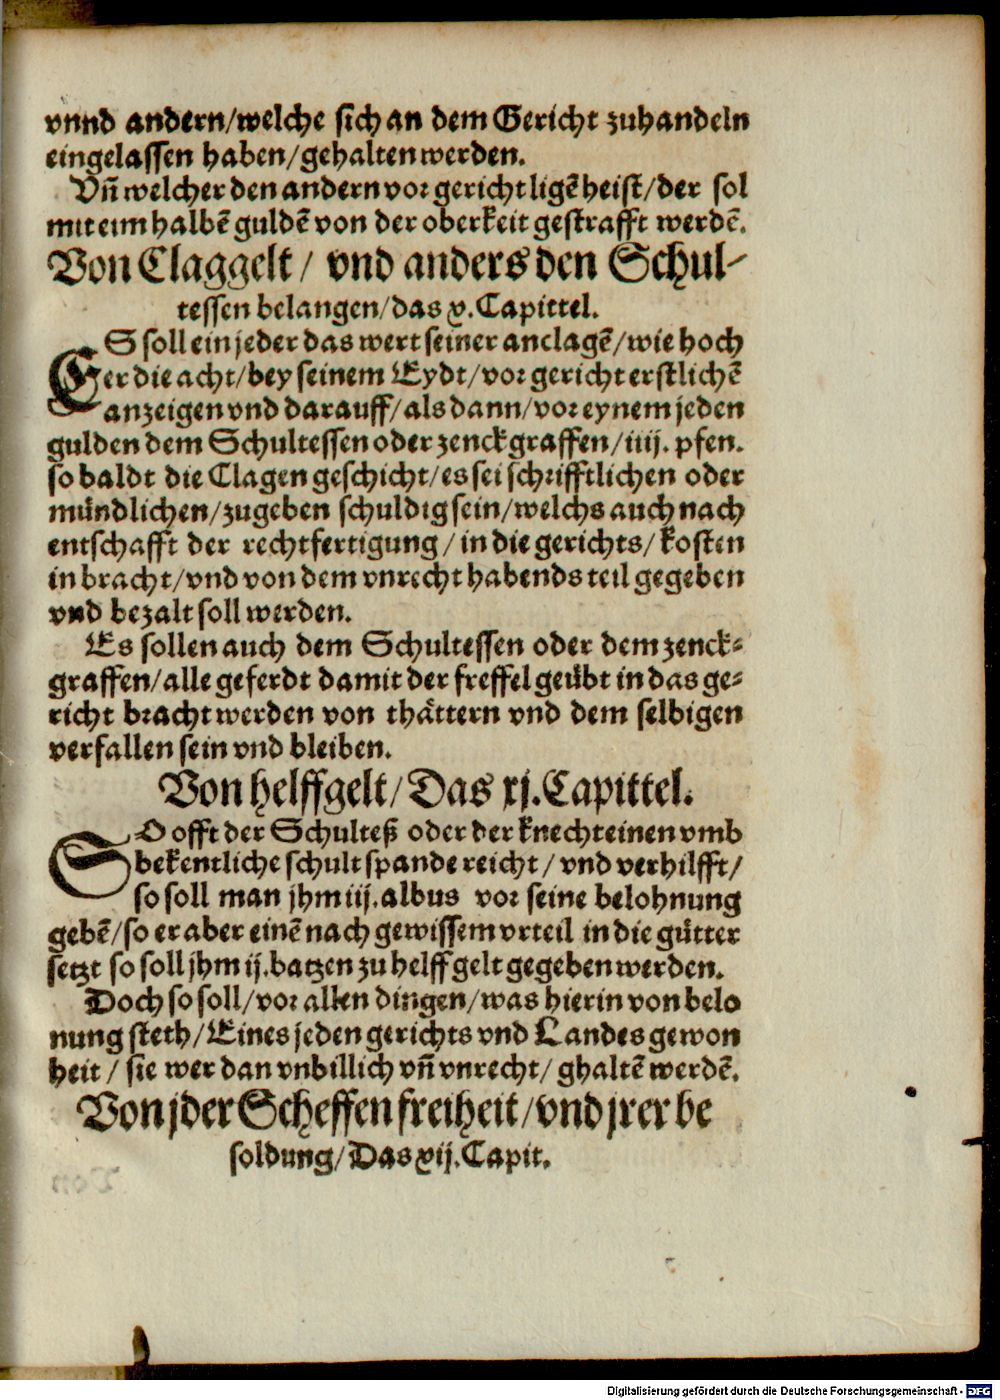 vnnd andern/welche sich an dem Gericht zuhandeln
eingelassen haben/gehalten werden.
Vñ welcher den andern vor gericht ligẽ heist/der sol
mit eim halbẽ guldẽ von der oberkeit gestrafft werdẽ.
Von Claggelt/ vnd anders den Schul-
tessen belangen/das x. Capittel.
ES soll ein jeder das wert seiner anclagẽ/wie hoch
er die acht/bey seinem Eydt/vor gericht erstlichẽ
anzeigen vnd darauff/als dann/vor eynem jeden
gulden dem Schultessen oder zenckgraffen/iiij. pfen.
so baldt die Clagen geschicht/es sei schrifftlichen oder
mündlichen/zugeben schuldig sein/welchs auch nach
entschafft der rechtfertigung/in die gerichts/kosten
in bracht/vnd von dem vnrecht habends teil gegeben
vnd bezalt soll werden.
Es sollen auch dem Schultessen oder dem zenck-
graffen/alle geferdt damit der freffel geübt in das ge-
richt bracht werden von thåttern vnd dem selbigen
verfallen sein vnd bleiben.
Von helffgelt/Das xj.Capittel.
SO offt der Schulteß oder der knecht einen vmb
bekentliche schult spande reicht/vnd verhilfft/
so soll man jhm iij.albus vor seine belohnung
gebẽ/so er aber einẽ nach gewissem vrteil in die gütter
setzt so soll jhm ij.batzen zu helffgelt gegeben werden.
Doch so soll/vor allen dingen/was hierin von belo
nung steth/Eines jeden gerichts vnd Landes gewon
heit/ sie wer dan vnbillich vñ vnrecht/ ghaltẽ werdẽ.
Von jder Scheffen freiheit/vnd jrer be
soldung/Das xij.Capit.
Digitalisierung gefördert durch die Deutsche Forschungsgemeinschaft - DFG